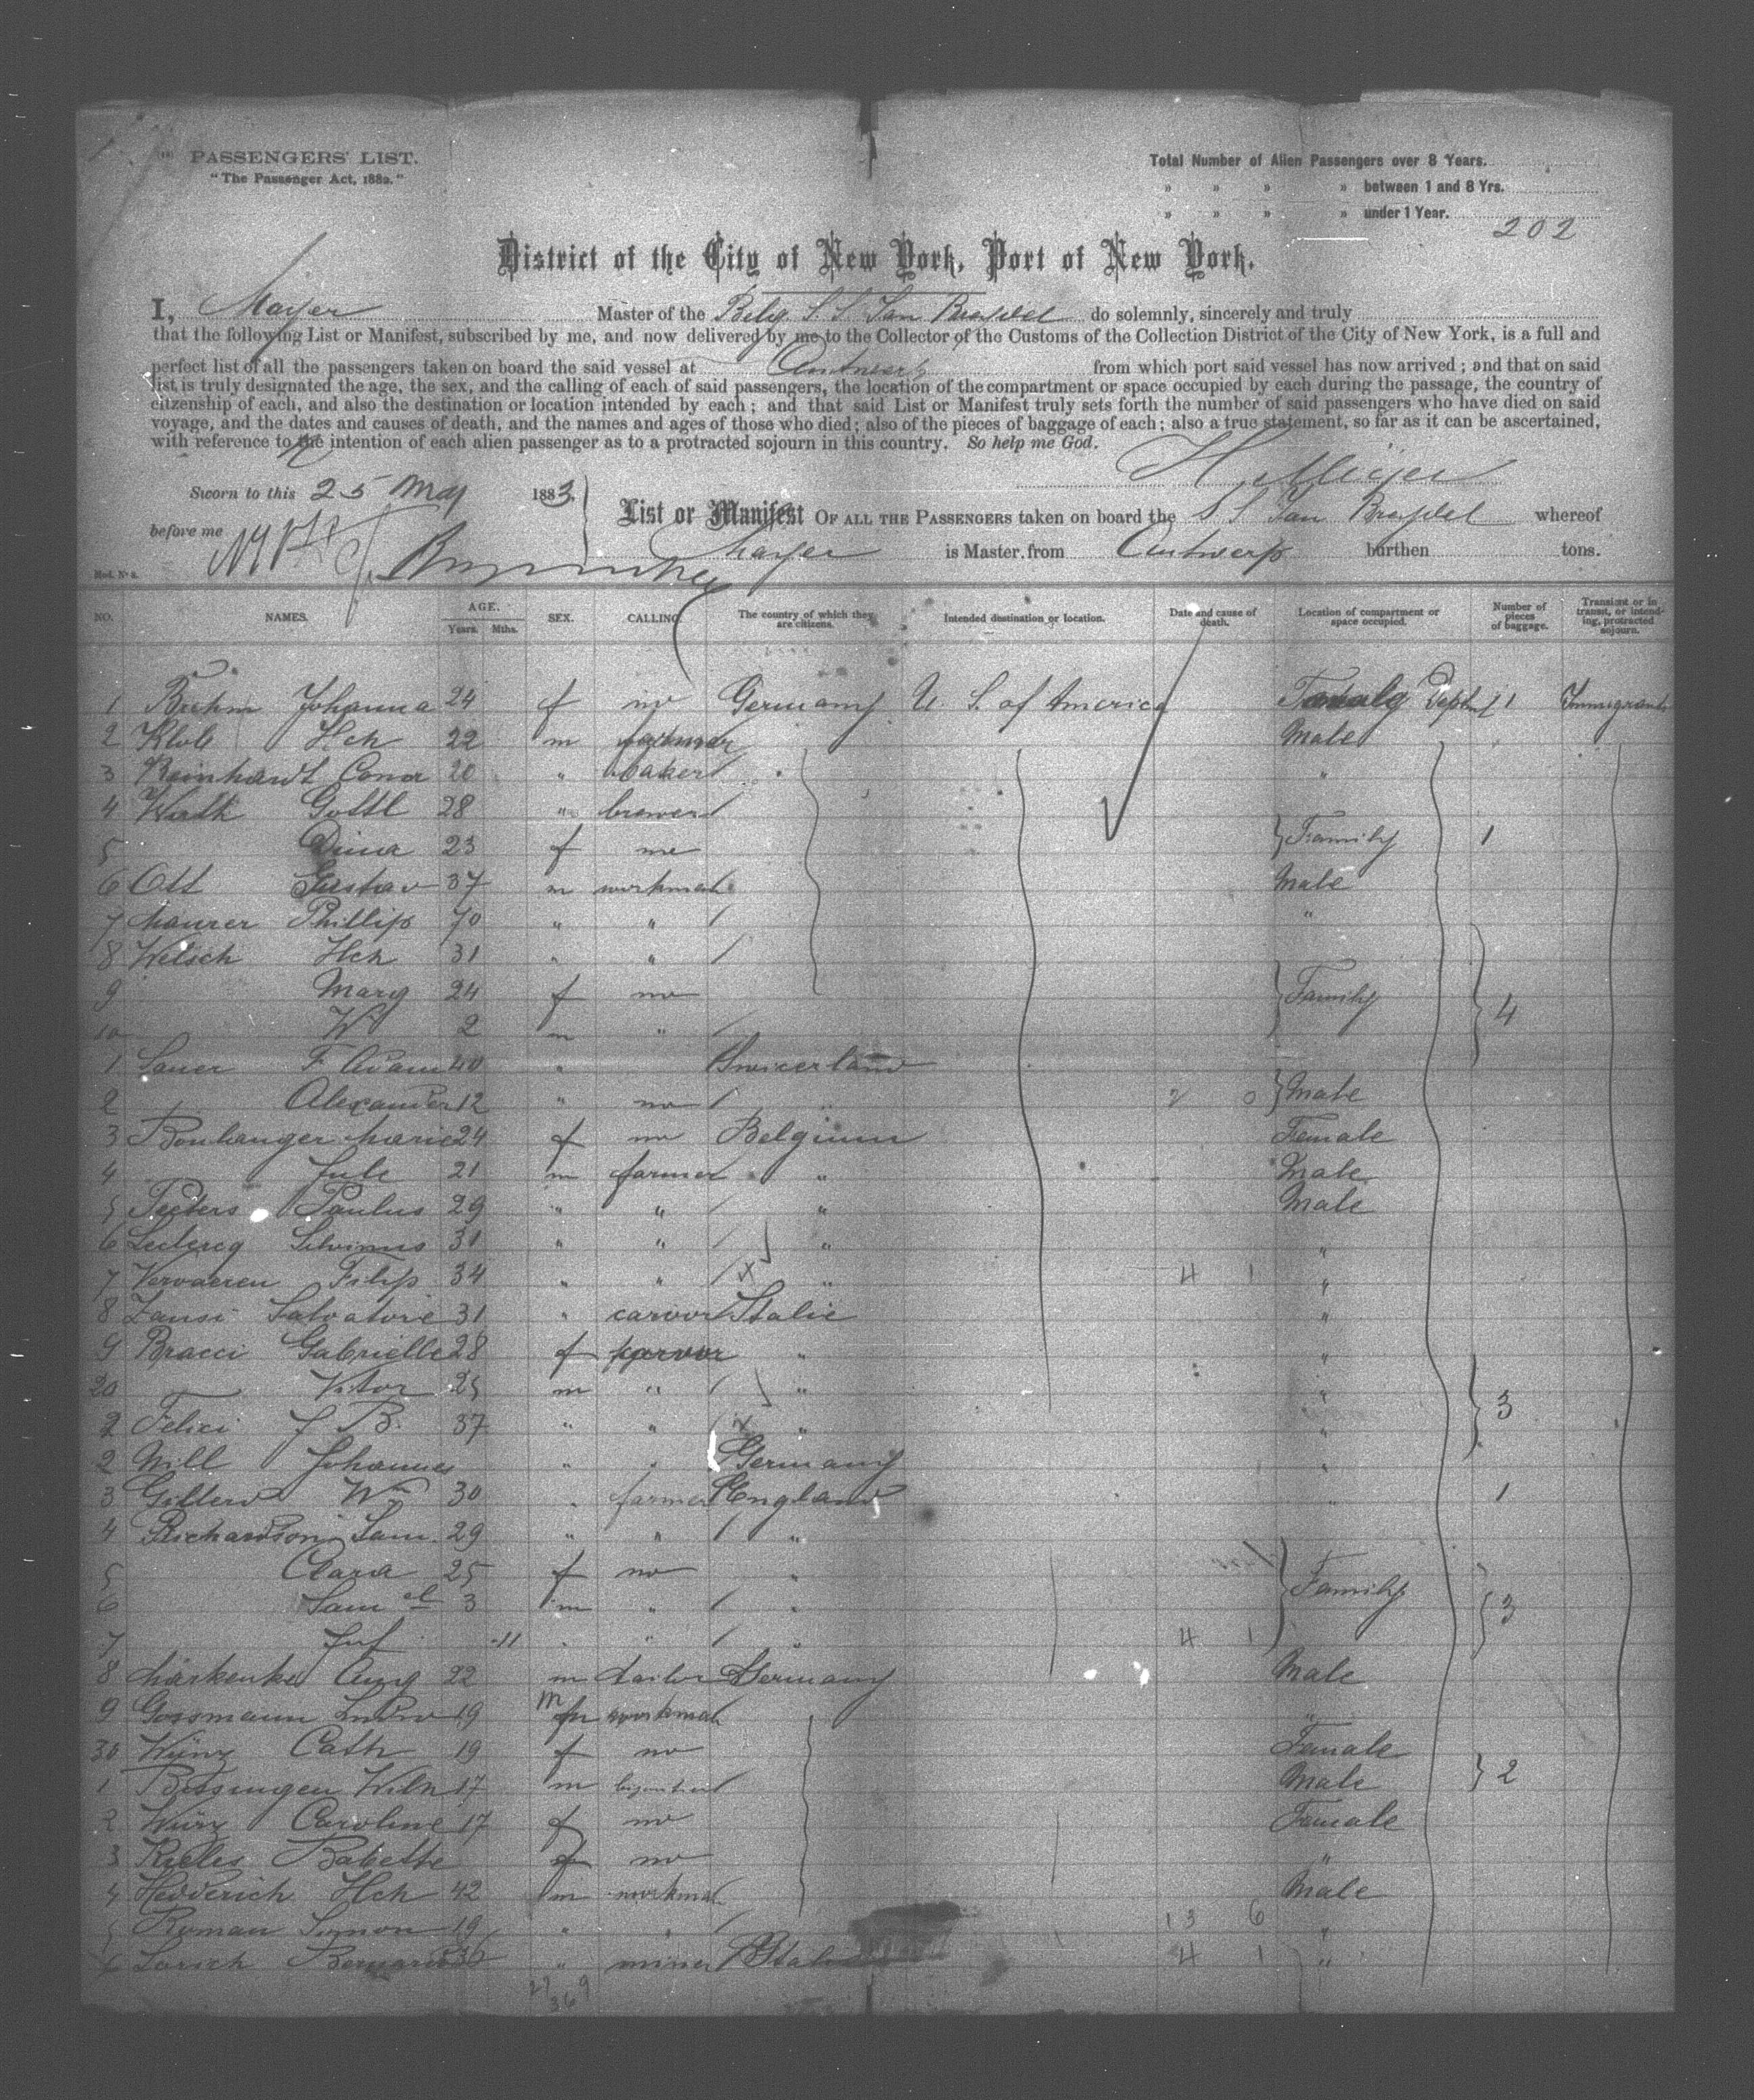 PASSENGERS' LIST.
"The Passenger Act, 1882."
Total Number of Alien Passengers over 8 Years.
" " " " between 1 and 8 Yrs.
" " " " under 1 Year.
202
District of the City of New York, Port of New York.
I, Mayer Master of the Belg. S. S. Jan Breydel do solemnly, sincerely and truly
that the following List or Manifest, subscribed by me, and now delivered by me to the Collector of the Customs of the Collection District of the City of New York, is a full and
perfect list of all the passengers taken on board the said vessel at Antwerp from which port said vessel has now arrived; and that on said
list is truly designated the age, the sex, and the calling of each of said passengers, the location of the compartment or space occupied by each during the passage, the country of
citzenship of each, and also the destination or location intended by each; and that said List or Manifest truly sets forth the number of said passengers who have died on said
voyage, and the dates and causes of death, and the names and ages of those who died; also of the pieces of baggage of each; also a true statement, so far as it can be ascertained,
with reference to the intention of each alien passenger as to a protracted sojourn in this country. So help me God.
H. Meijer
Sworn to this 25 May 1883
before me
List or Manifest OF ALL THE PASSENGERS taken on board the S S Jan Breydel whereof
Mayer is Master, from Antwerp burthen tons.
Mod. No 8.
NO. NAMES. AGE. Years. Mths. SEX. CALLING. The country of which they are citizens. Intended destination or location. Date and cause of death. Location of compartment or space occupied. Number of pieces of baggage. Transient or in transit, or intending, protracted sojourn.
1 Johanna 24 f no Germany U. S. of America Female Deptm 1 Immigrant
2 Klob Hch 22 m farmer Male
3 Reinhardt Conor 20 " baker "
4 Wirth Gottl 28 " brewer
5 Dina 23 f no Family 1
6 Ott Gustav 37 m workman Male
7 Maurer Phillip 70 " " "
8 Welsch Hch 31 " "
9 Mary 24 f no Family 4
10 W 2 m "
1 Sauer F. Adam 40 " Swicerland
2 Alexander 12 " no " 2 0 Male
3 Boulanger Marie 24 f no Belgium Female
4 Jule 21 m farmer " Male
5 Peeters Paulus 29 " " " Male
6 Leclercq Silvinus 31 " " " "
7 Vervaeren Filip 34 " " X " 4 1 "
8 Zansi Salvatore 31 " carver Italie "
9 Bracci Gabrielle 28 f " "
20 Vitor 25 m " " "
2 Felici J B. 37 " " X " " 3
2 Will Johannes " " Germany "
3 Wm 30 " farmer England " 1
4 Richardson Sam. 29 " " "
5 Clara 25 f no " Family
6 Samel 3 m " " 3
7 Inf 11 " " " 4 1
8 Aug 22 m tailor Germany Male
9 Gossmann Ludw 19 m workman "
30 Wünz Cath 19 f no Female
1 Bissinger Wilh 17 m Male 2
2 Würz Caroline 17 f no Female
3 Babette f no "
4 Hedderich Hch 42 m workman Male
5 Roman Simon 19 " " 13 6 "
6 Lorich Bernard 36 " miner 4 1 "
27 9
36